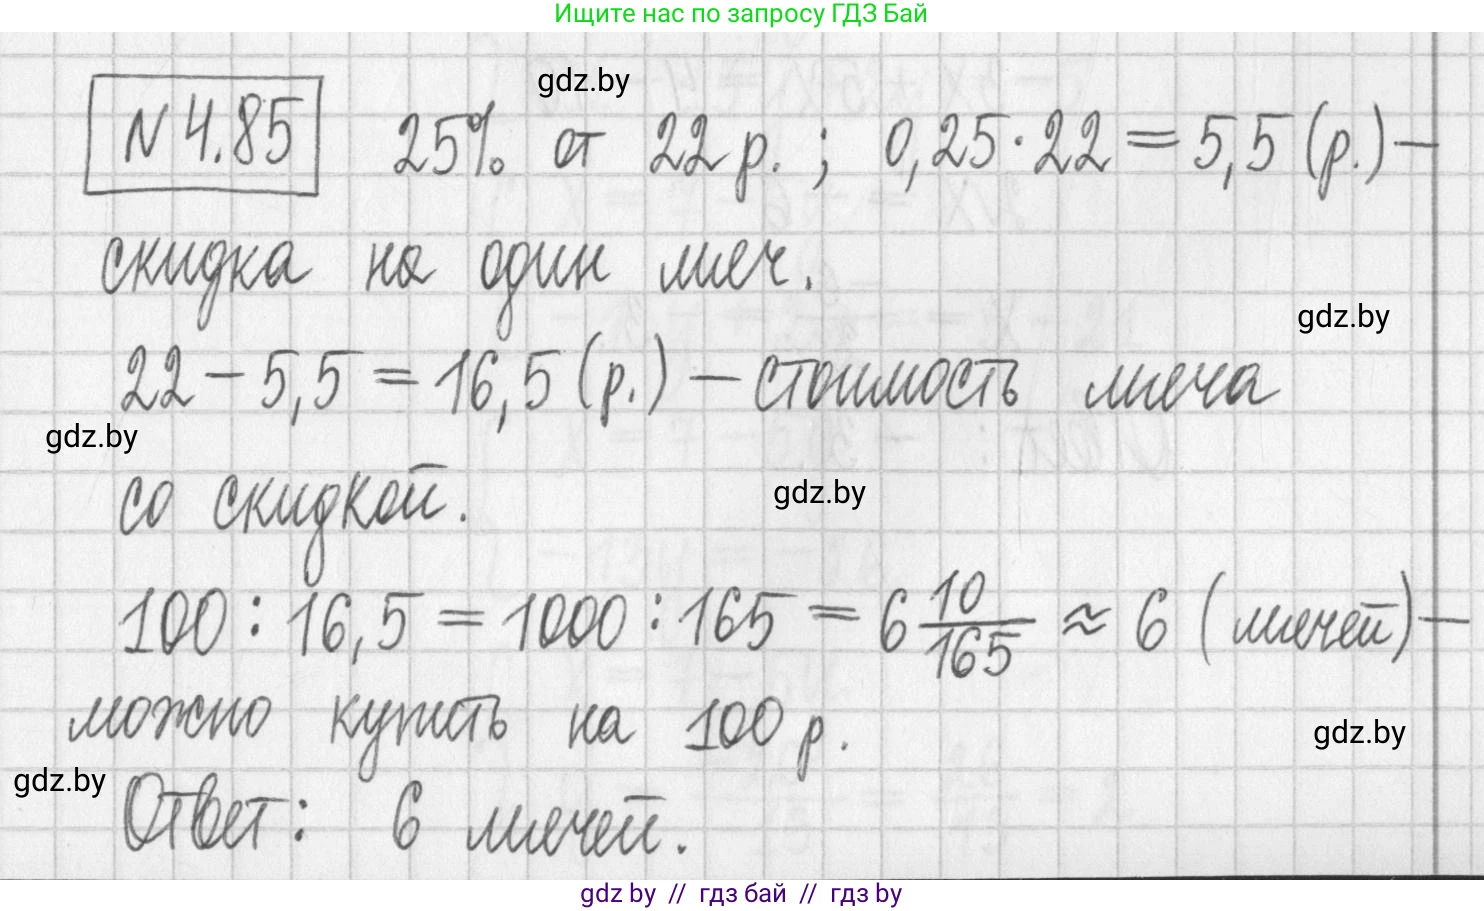 Ищите нас по запросу ГДЗ Бай
gdz.by
N 4.85 25% от 22 р. ; 0,25 · 22 = 5,5 (р.) —
скидка на один меч.
gdz.by
22 — 5,5 = 16,5 (р.) — стоимость меча
gdz.by
со скидкой.
gdz.by
100 : 16,5 = 1000 : 165 = 6 10/165 ≈ 6 (мечей) —
можно купить на 100 р.
gdz.by
gdz.by
Ответ: 6 мечей.
gdz by // гдз бай // гдз by